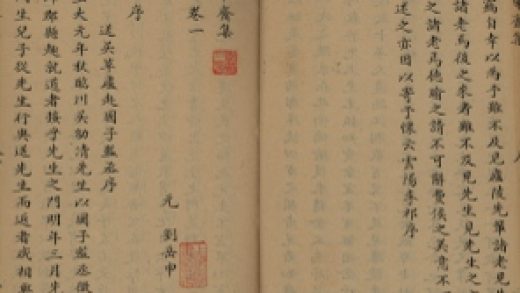 為自幸以為予雖不及見廬陵先輩諸老見先
諸老焉後之來者雖不及見先生見先生之
諸老焉德瑜之請不可辭費侯之美意不
述之亦因以寄予懷云雲陽李祁序
齋集
卷一
元 劉岳申
序
送吳草廬赴國子監丞序
至大元年秋臨川吳幼清先生以國子監丞徵
郡縣趣就道者接乎先生之門明年三月先
生兒子從先生行與送先生而返者或相與